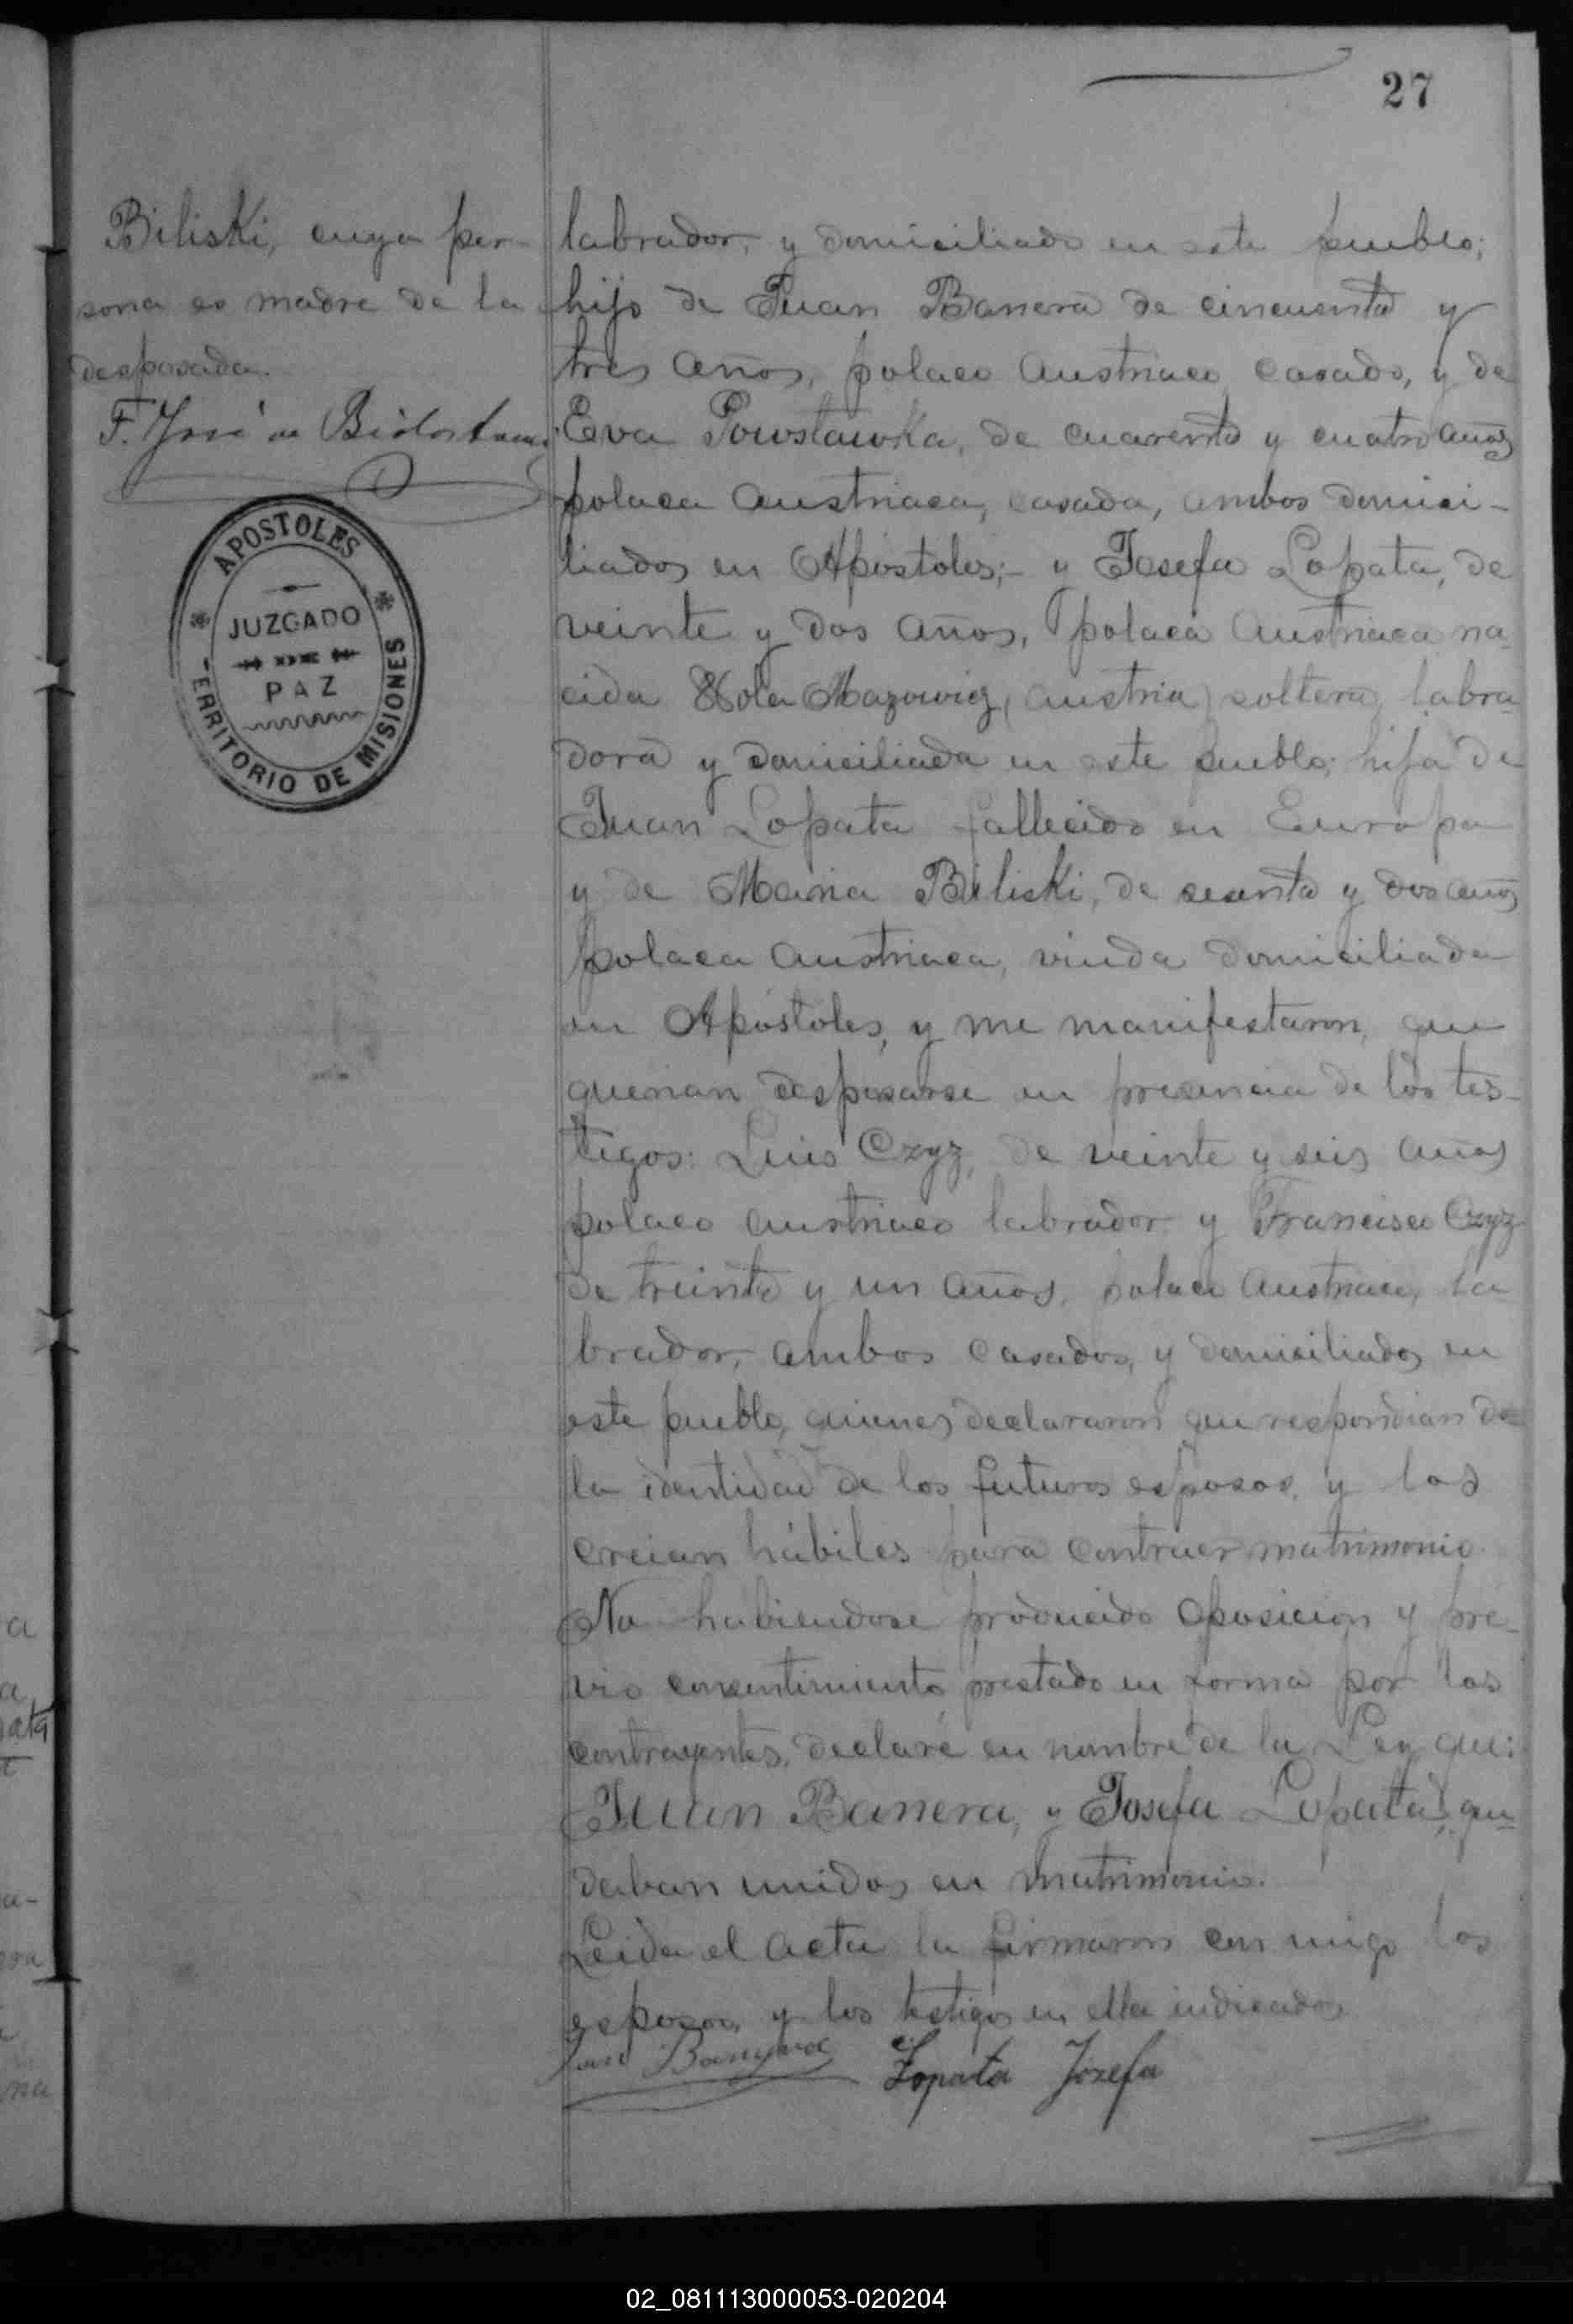 27
Biliski, cuya per-
sona es madre de la
desposada.
F. José de
APOSTOLES
JUZGADO
PAZ
TERRITORIO DE MISIONES
labrador, y domiciliado en este pueblo;
hijo de Juan Banera de cincuenta y
tres años, polaco austriaco casado, y de
Eva Powstawka, de cuarenta y cuatro años
polaca austriaca, casada, ambos domici-
liados en Apóstoles;- y Josefa Lopata, de
veinte y dos años, polaca austriaca na-
cida Wola Mazowiez (Austria) soltera, labra-
dora y domiciliada en este pueblo; hija de
Juan Lopata fallecido en Europa
y de Maria Biliski, de sesenta y dos años
polaca austriaca, viuda domiciliada
en Apóstoles, y me manifestaron, que
querian desposarse en presencia de los tes-
tigos: Luis Czyz, de veinte y seis años
polaco austriaco labrador y Francisco Czyz
de treinta y un años, polaco austriaco, la-
brador, ambos casados, y domiciliados en
este pueblo, quienes declararon que respondian de
la identidad de los futuros esposos, y los
creian hábiles para contraer matrimonio.
No habiendose producido oposicion y pré-
vio consentimiento prestado en forma por los
contrayentes, declaré en nombre de la Ley que:
Juan Banera, y Josefa Lopata, que-
daban unidos en matrimonio.
Leida el acta la firmaron con migo los
esposos, y los testigos en ella indicados
Jan Lopata Józefa
02_081113000053-020204